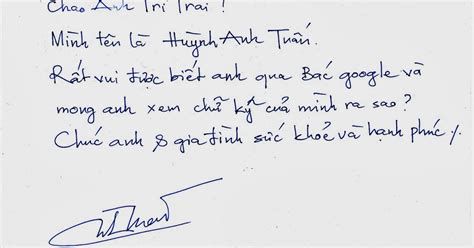 Chào Anh Trí Trai !
Mình tên là Huỳnh Anh Tuấn.
Rất vui được biết anh qua Bác google và
mong anh xem chữ ký của mình ra sao ?
Chúc anh & gia đình sức khoẻ và hạnh phúc /.